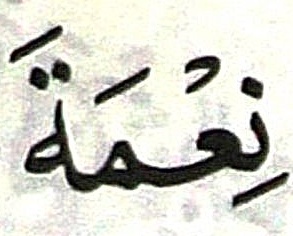 نِعْمَةَ